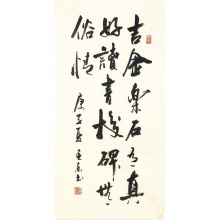 吉金樂石有真
好讀書校碑無
俗情
庚子夏